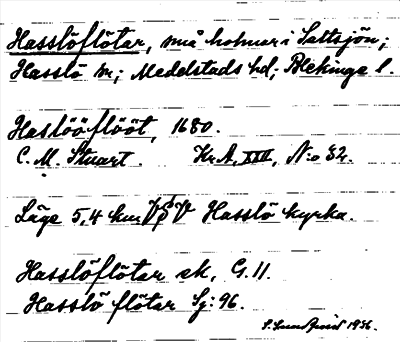 Hasslöflötar, små holmar i Saltsjön;
Hasslö sn; Medelstads hd; Blekinge l.
Haslööflööt, 1680.
C. M. Stuart. Kr.A, XXII, N:o 32.
Läge 5,4 km VSV Hasslö kyrka.
Hasslöflötar ek, G. 11.
Hasslö flötar Sj: 96.
1936.